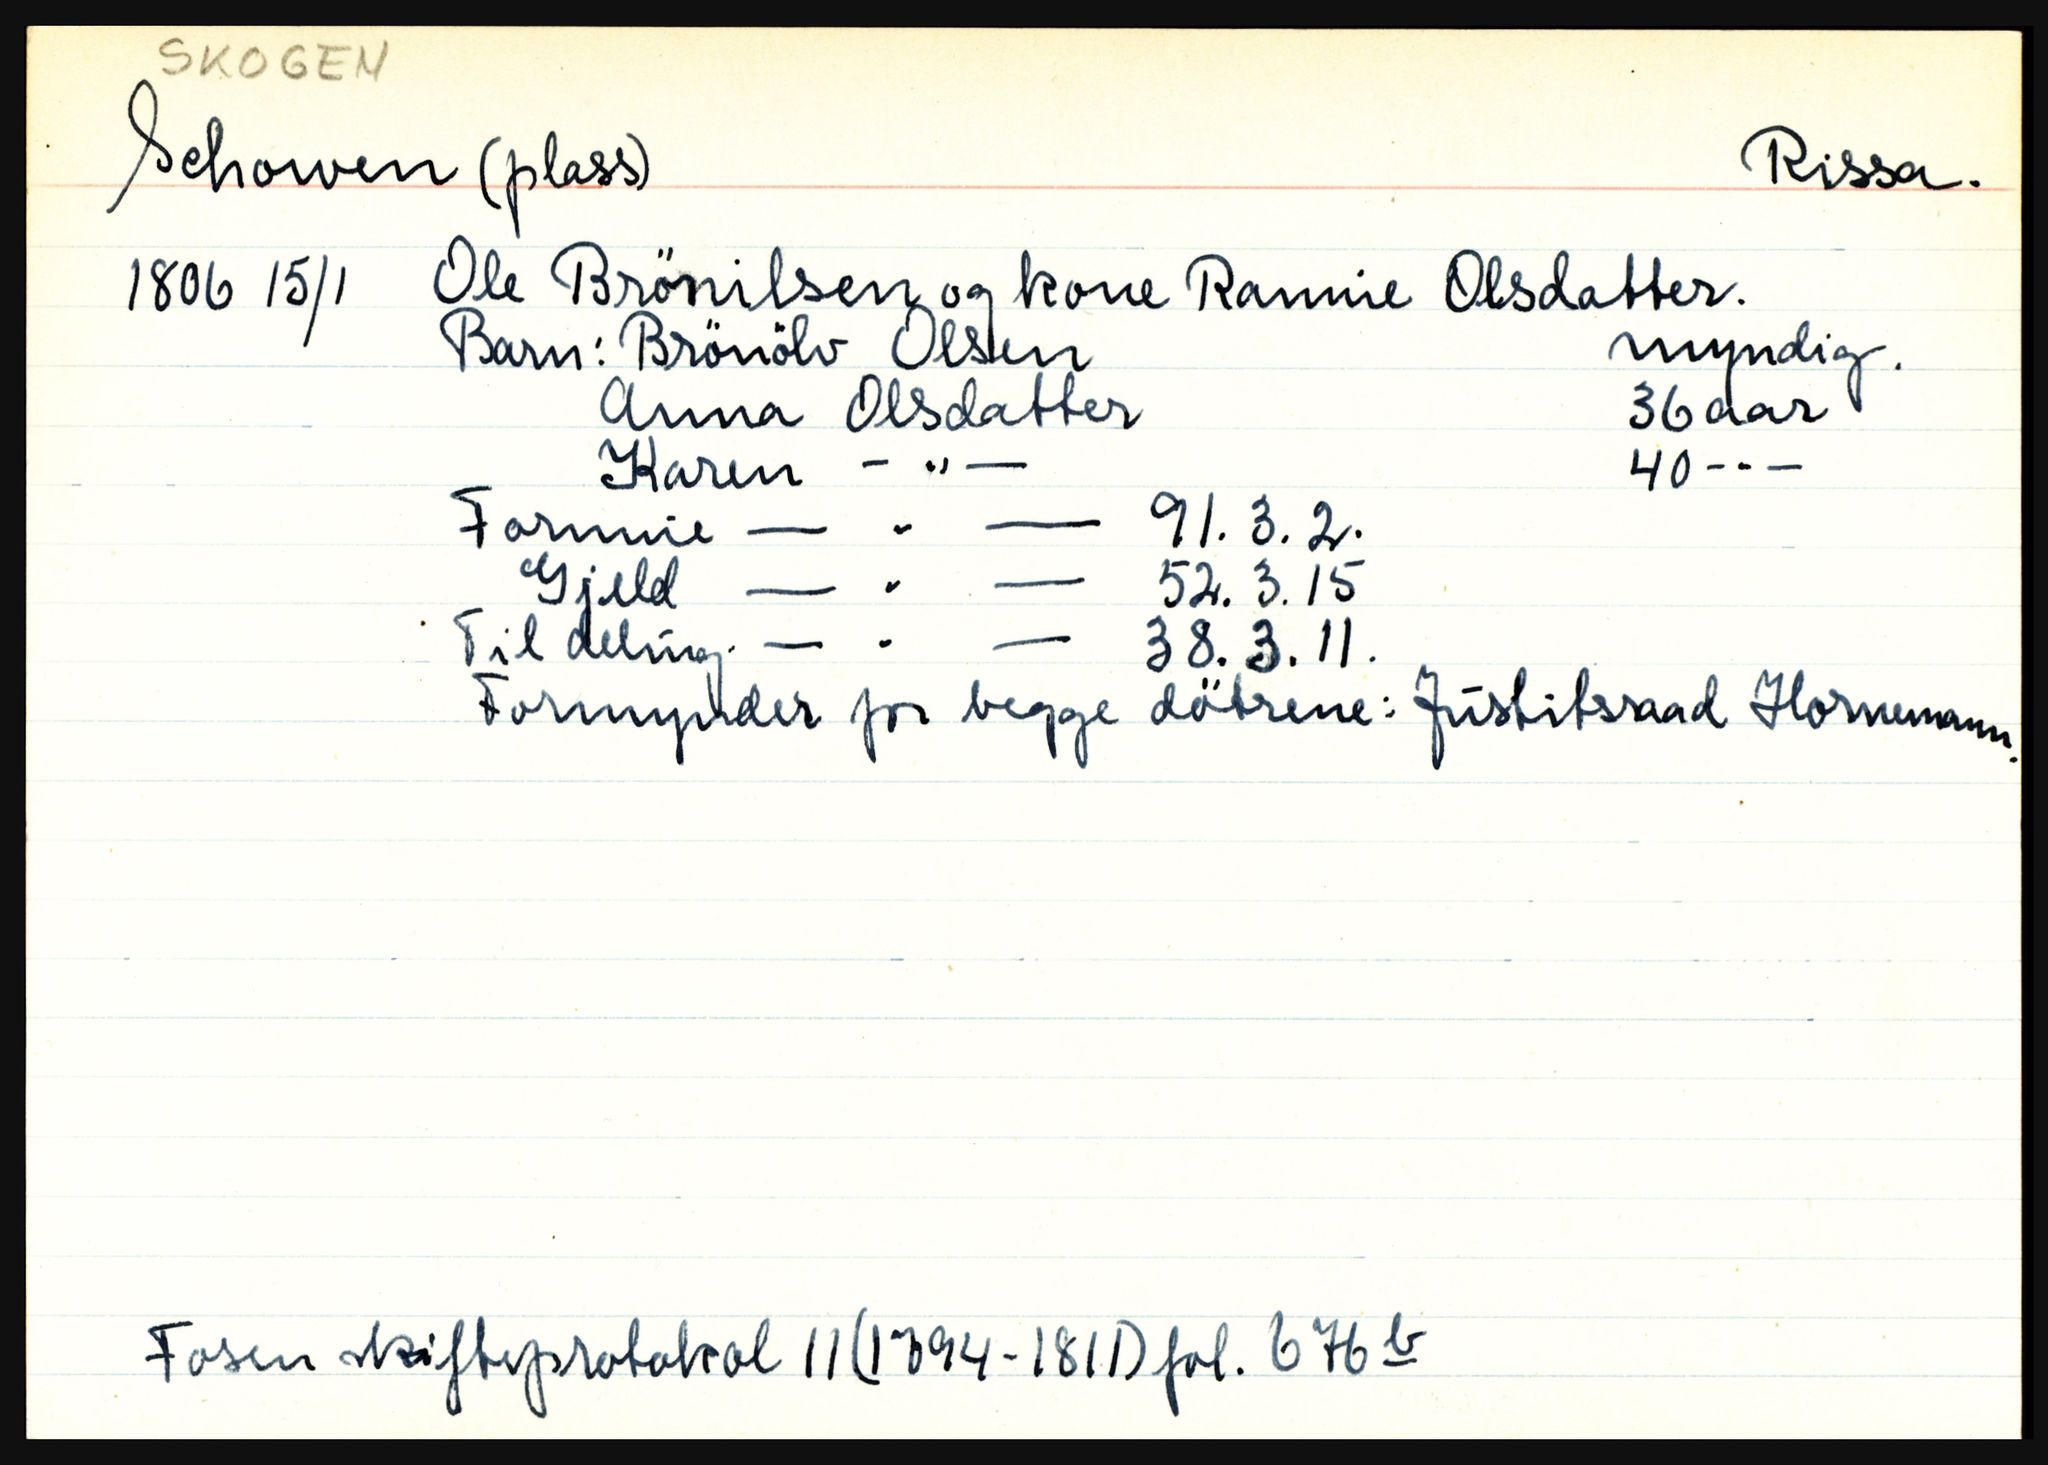 SKOGEN
Schowen (plass) Rissa.
1806 15/1 Ole Brönilsen og kone Rannie Olsdatter.
Barn: Brönölv Olsen myndig.
Anna Olsdatter 36 aar
Karen - " - 40 - " -
Formue — " — 91. 3. 2.
Gjeld — " — 52. 3. 15
Til deling. — " — 38. 3. 11.
Formynder for begge dötrene: Justitsraad Hornemann.
Fosen skifteprotokol 11 (1794-1811) fol. 676 b